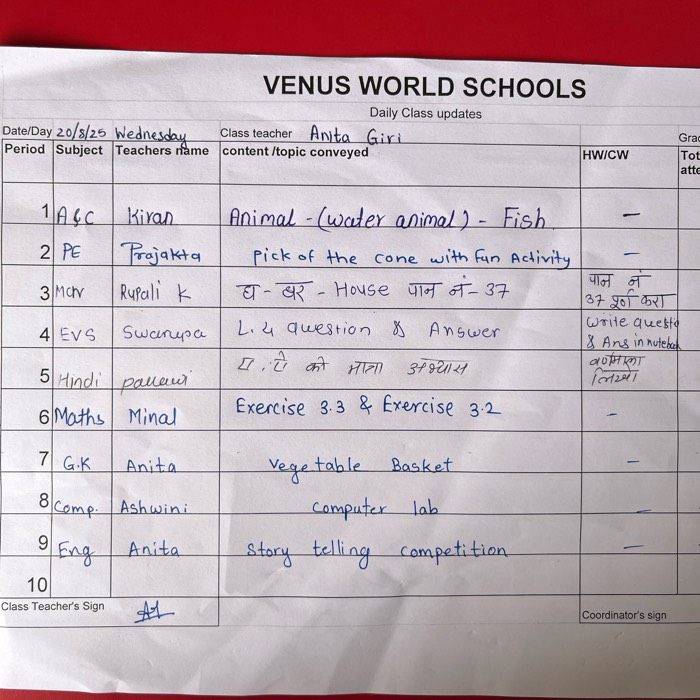 VENUS WORLD SCHOOLS
Daily Class updates
Date/Day 20/8/25 Wednesday Class teacher Anita Giri Grad
Period Subject Teachers name content /topic conveyed HW/CW Tot
atte
1 A&C Kiran Animal - (water animal) - Fish –
2 PE Prajakta Pick of the cone with fun Activity –
3 Mar Rupali K घ - घर - House पान नं - 37 पान नं
37 पूर्ण करा
4 EVS Swarupa L. 4 question & Answer Write questio
& Ans in notebook
5 Hindi pallavi ऐ की मात्रा अभ्यास वर्णमाला
लिखो
6 Maths Minal Exercise 3.3 & Exercise 3.2 –
7 G.K Anita Vegetable Basket –
8 Comp. Ashwini Computer lab –
9 Eng Anita Story telling competition –
10
Class Teacher's Sign Coordinator's sign